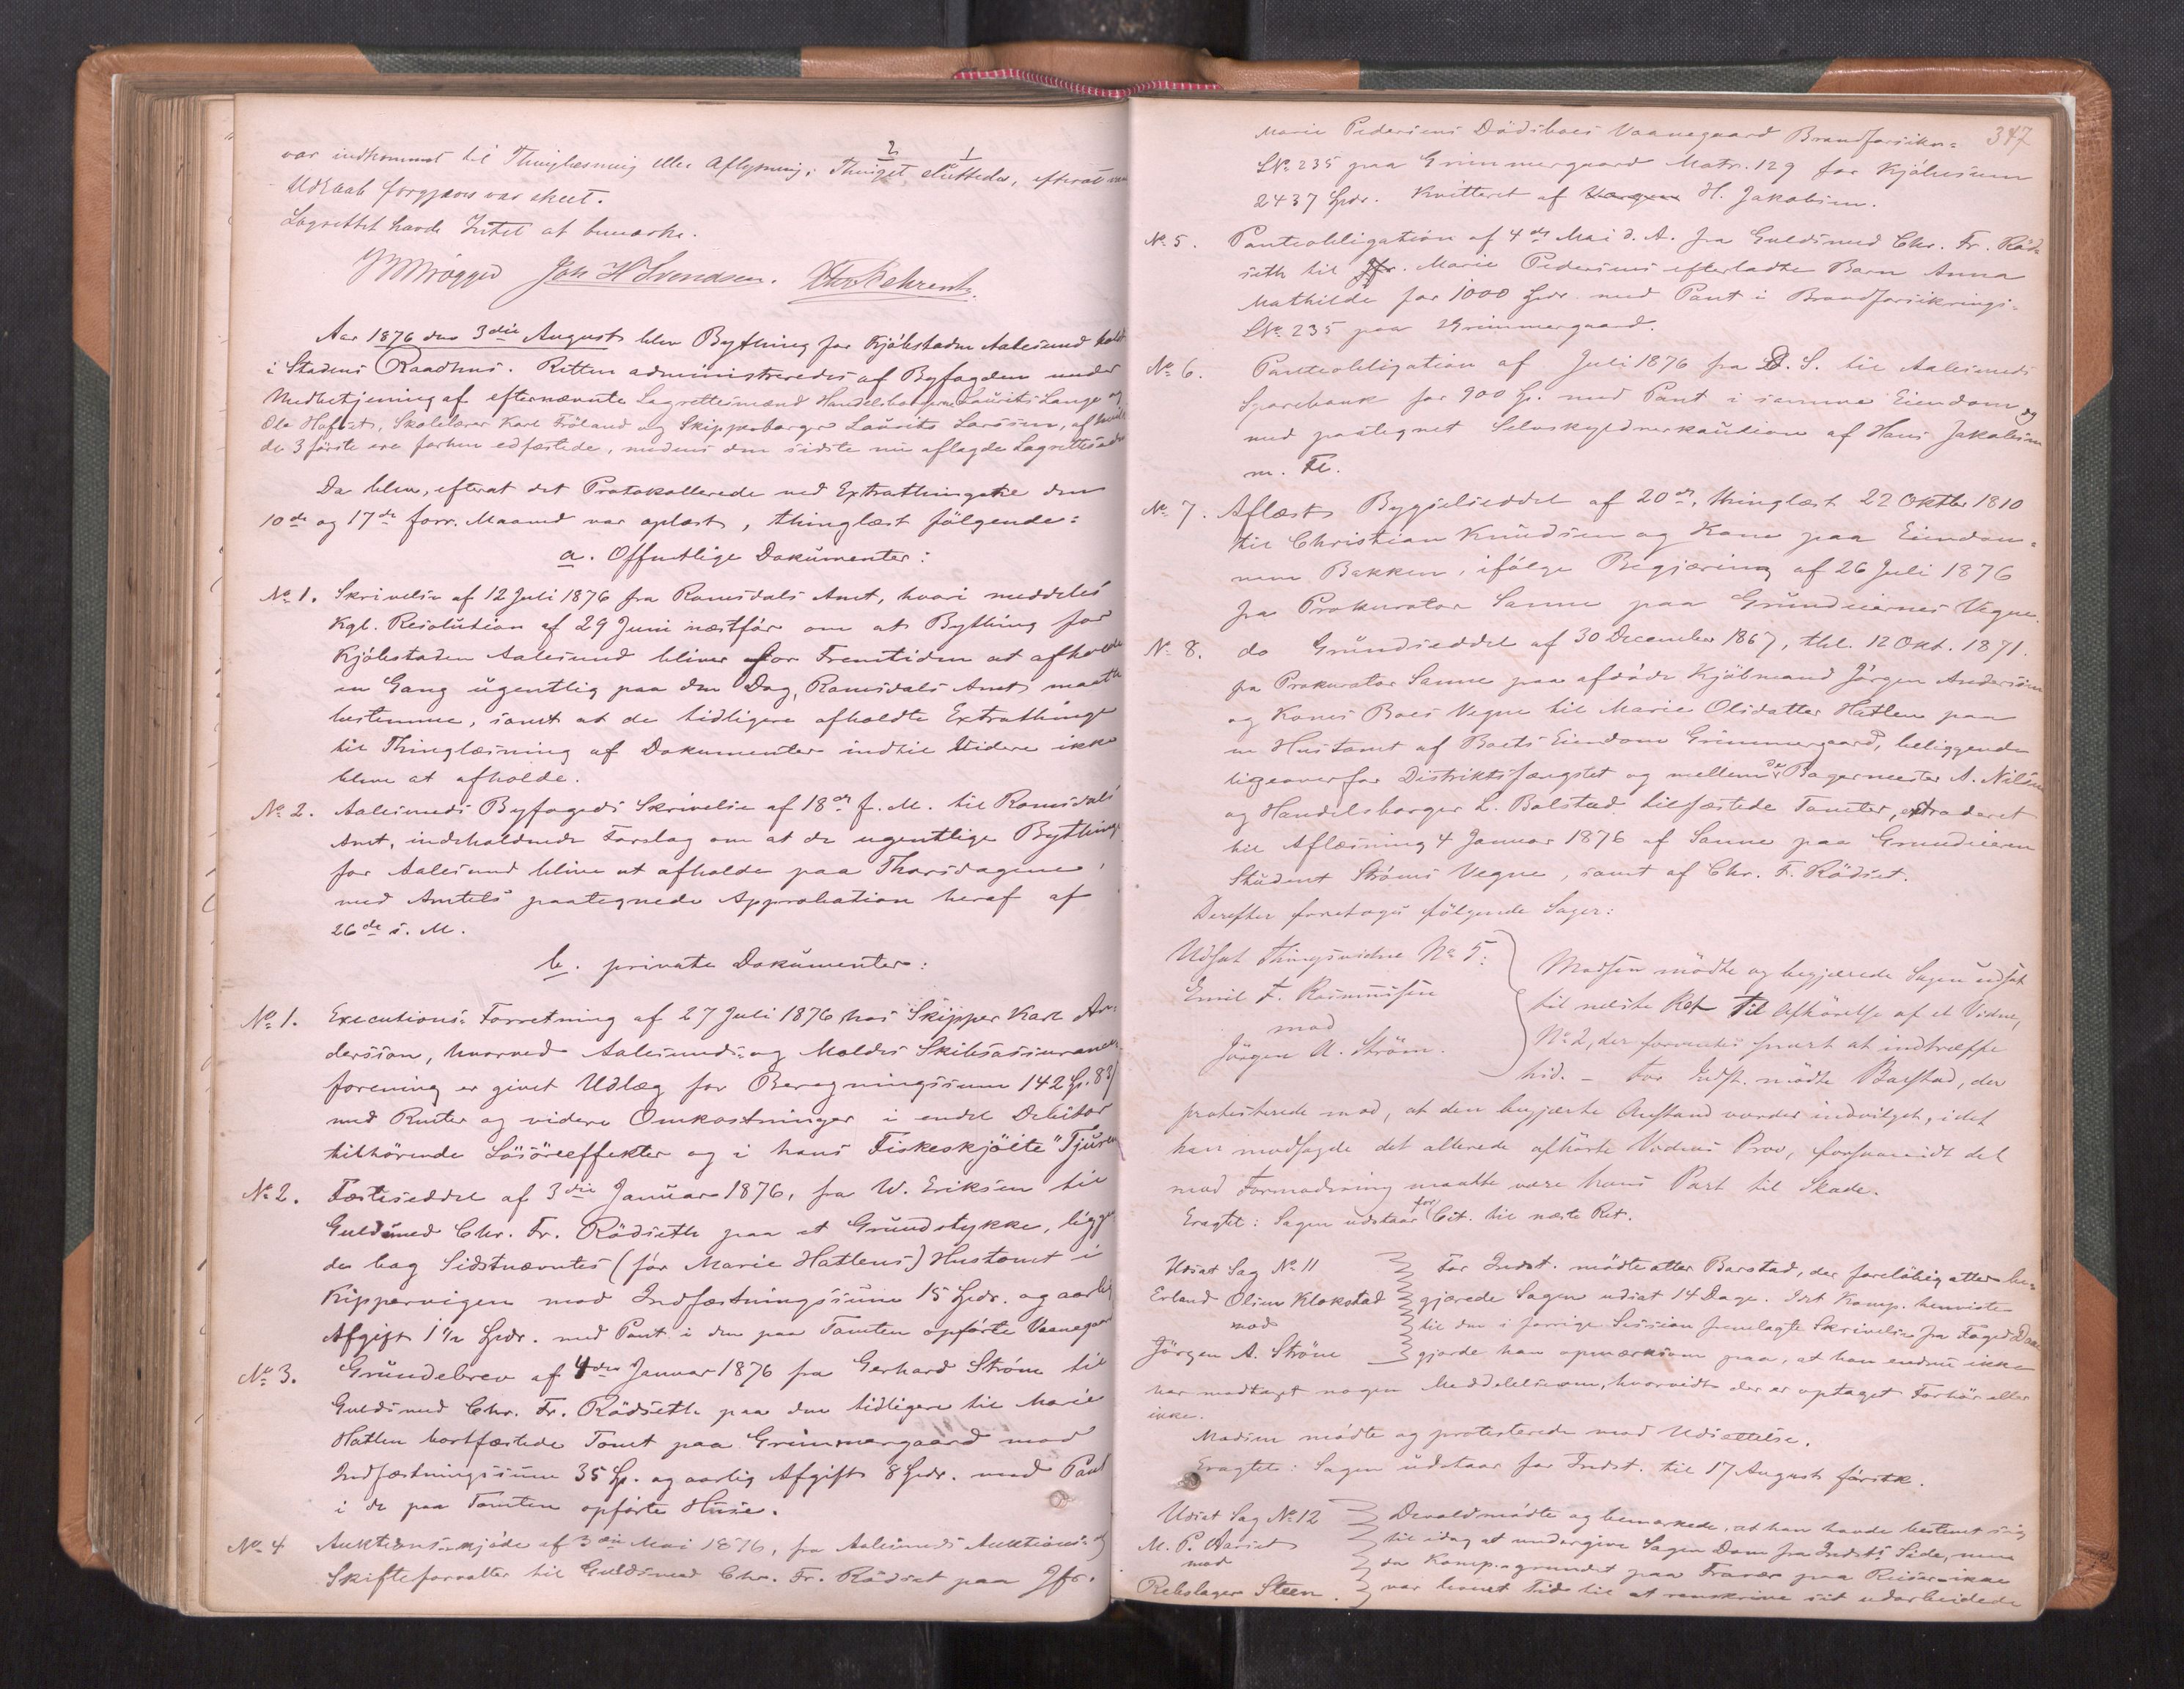 var indkommet til Thinglæsning eller Aflysning; Thinget sluttedes, efterat
2 1
Udraab forgjæves var skeet.
Lagrettet havde Intet at bemærke.
Joh H Svendsen. Behrentz.
Aar 1876 den 3die August blev Bything for Kjøbstaden Aalesund holdt
i Stadens Raadhus. Retten administreredes af Byfogden under
Medbetjening af efternævnte Lagrettesmænd Handelsborgerne Laurits Lange og
Ole Hofset, Skolelærer Karl Fröland og Skipperborger Laurits Larssen, af hvilke
de 3 første ere forhen edfæstede, medens den sidste nu aflagde Lagrettesed
Da blev, efterat det Protokollerede ved Extrathingene den
10de og 17de forr. Maaned var oplæst, thinglæst følgende:
a. Offentlige Dokumenter:
No 1. Skrivelse af 12 Juli 1876 fra Romsdals Amt, hvori meddeles
Kgl. Resolution af 29 Juni næstfør om at Bything for
Kjøbstaden Aalesund bliver for Fremtiden at afholde
en Gang ugentlig paa den Dag, Romsdals Amt maatte
bestemme, samt at de tidligere afholdte Extrathinge
til Thinglæsning af Dokumenter indtil Videre ikke
blive at afholde.
No 2. Aalesunds Byfogeds Skrivelse af 18de f. M. til Romsdals
Amt, indeholdende Forslag om at de ugentlige Bythinge
for Aalesund blive at afholde paa Thorsdagene,
med Amtets paategnede Approbation heraf af
26de s. M.
b. private Dokumenter:
No 1. Executions-Forretning af 27 Juli 1876 hos Skipper Karl An-
dersson, hvorved Aalesunds- og Moldes Skibsassurance-
forening er givet Udlæg for Beregningssum 142 Sp. 83
med Renter og videre Omkostninger i endel Debitor
tilhørende Løsøreeffekter og i hans Fiskeskjöite "Tjuren
No 2. Fæsteseddel af 3die Januar 1876, fra W. Eriksen til
Guldsmed Chr. Fr. Rödseth paa et Grundstykke, liggen-
de bag Sidstnævntes (før Marie Hatlens) Hustomt i
Kippervigen mod Indfæstningssum 15 Spdr. og aarlig
Afgift 1 1/2 Spdr. med Pant i den paa Tomten opførte Vaanegaard
No 3. Grundebrev af 4de Januar 1876 fra Gerhard Ström til
Guldsmed Chr. Fr. Rödseth paa den tidligere til Marie
Hatlen bortfæstede Tomt paa Grimmergaard mod
Indfæstningssum 35 Sp. og aarlig Afgift 8 Spdr. med Pant
i de paa Tomten opførte Huse.
No 4 Auktionsskjøde af 3die Mai 1876, fra Aalesunds Auktions- og
Skifteforvalter til Guldsmed Chr. Fr. Rödset paa Jfr.
347
Marie Pedersens Dödsboes Vaanegaard Brandforsikr.-
LNo 235 paa Grimmergaard Matr. 129 for Kjøbesum
2437 Spdr. Kvitteret af H. Jakobsen.
No 5. Panteobligation af 4de Mai d. A. fra Guldsmed Chr. Fr. Röd-
seth til Jfr. Marie Pedersens efterladte Barn Anna
Mathilde for 1000 Spdr. med Pant i Brandforsikrings-
LNo 235 paa Grimmergaard.
No 6. Panteobligation af Juli 1876 fra D. S. til Aalesunds
Sparebank for 900 Sp. med Pant i samme Eiendom og
med paategnet Selvskyldnerkaution af Hans Jakobsen
m. Fl.
No 7. Aflæst Bygselseddel af 20de, thinglæst 22 Oktbr 1810
til Christian Knudsen og Kone paa Eiendom-
men Bakken, ifølge Begjæring af 26 Juli 1876
fra Prokurator Sanne paa Grundeiernes Vegne.
No 8. do Grundseddel af 30 December 1867, thl. 12 Okt. 1871.
fra Prokurator Sanne paa afdöde Kjöbmand Jörgen Anderssen
og Kones Boes Vegne til Marie Olsdatter Hatlen paa
en Hustomt af Boets Eiendom Grimmergaard, beliggende
ligeoverfor Distriktsfængslet og mellem de Bagermester A. Nilsen
og Handelsborger L. Bolstad tilfæstede Tomter, extraderet
til Aflæsning 4 Januar 1876 af Sanne paa Grundeieren
Student Ströms Vegne, samt af Chr. F. Rödset.
Derefter foretoges følgende Sager:
Udsat Thingsvidne No 5:
Emil F. Rasmussen
mod
Jörgen A. Ström.
Madsen mödte og begjærede Sagen udsat
til næste Ret til Afhörelse af et Vidne,
No 2, der formentes snart at indtræffe
hid. - For Indst. mödte Barstad, der
protesterede mod, at den begjærte Anstand vorder indvilget, idet
han modsagde det allerede afhörte Vidnes Prov, forsaavidt det
mod Formodning maatte være hans Part til Skade.
Eragtet: Sagen udstaar for Cit. til næste Ret.
Udsat Sag No 11
Erland Olsen Klokstad
mod
Jörgen A. Ström
For Indst. mödte atter Barstad, der foreløbig atter be-
gjærede Sagen udsat 14 Dage. Idet Komp. henviste
til den i forrige Session fremlagte Skrivelse fra Foged Daae
gjorde han opmærksom paa, at han endnu ikke
har modtaget nogen Meddelelse om, hvorvidt der er optaget Forhör eller
ikke.
Madsen mödte og protesterede mod Udsættelse.
Eragtet: Sagen udstaar for Indst. til 17 August förstk.
Udsat Sag No 12
M. P. Aarset
mod
Rebslager Steen.
Devold mödte og bemærkede, at han havde bestemt sig
til idag at undergive Sagen Dom fra Indsts Side, men
da Komp. grundet paa Fravær paa Reiser ikke
var levnet Tid til at renskrive sit udarbeidede